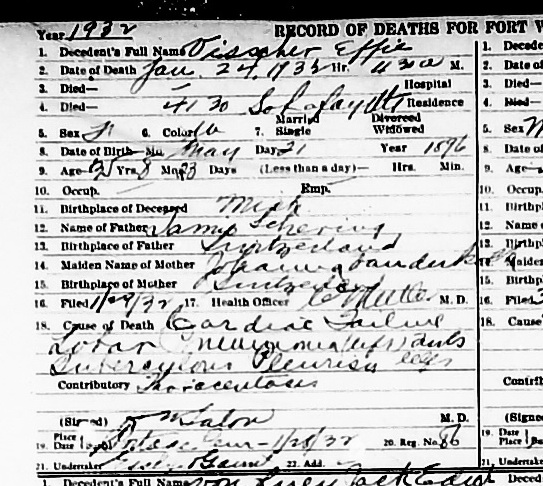 Year 1932 RECORD OF DEATHS FOR FORT W
1. Decedent's Full Name Visscher Effie
2. Date of Death Jan. 24, 1932 Hr. 11 30 a M.
3. Died— Hospital
4. Died— 4130 So Lafayette Residence
5. Sex F 6. Color W 7. Married Single Divorced Widowed
8. Date of Birth—Mo. May Day 21 Year 1896
9. Age 35 Yrs. 8 Mos. 3 Days (Less than a day)— Hrs. Min.
10. Occup. Emp.
11. Birthplace of Deceased Mich
12. Name of Father
13. Birthplace of Father Switzerland
14. Maiden Name of Mother Johanna
15. Birthplace of Mother Switzerland
16. Filed 1/29/32 17. Health Officer M. D.
18. Cause of Death Cardiac Failure
Lobar Pneumonia (left)
Tubercylous Pleurisy
Contributory Paracentesis
(Signed) Eaton M. D.
19. Place Date 1/28/32 20. Reg. No. 86
21. Undertaker 22. Add.
1. Decedent's Full Name
1. Decede
2. Date of
3. Died—
4. Died—
5. Sex M
8. Date of
9. Age—
10. Occup.
11. Birthpl
12. Name o
13. Birthpl
14. Maiden
15. Birthpl
16. Filed
18. Cause
Contrib
(Signed
19. Place Date
21. Undert
1. Deced